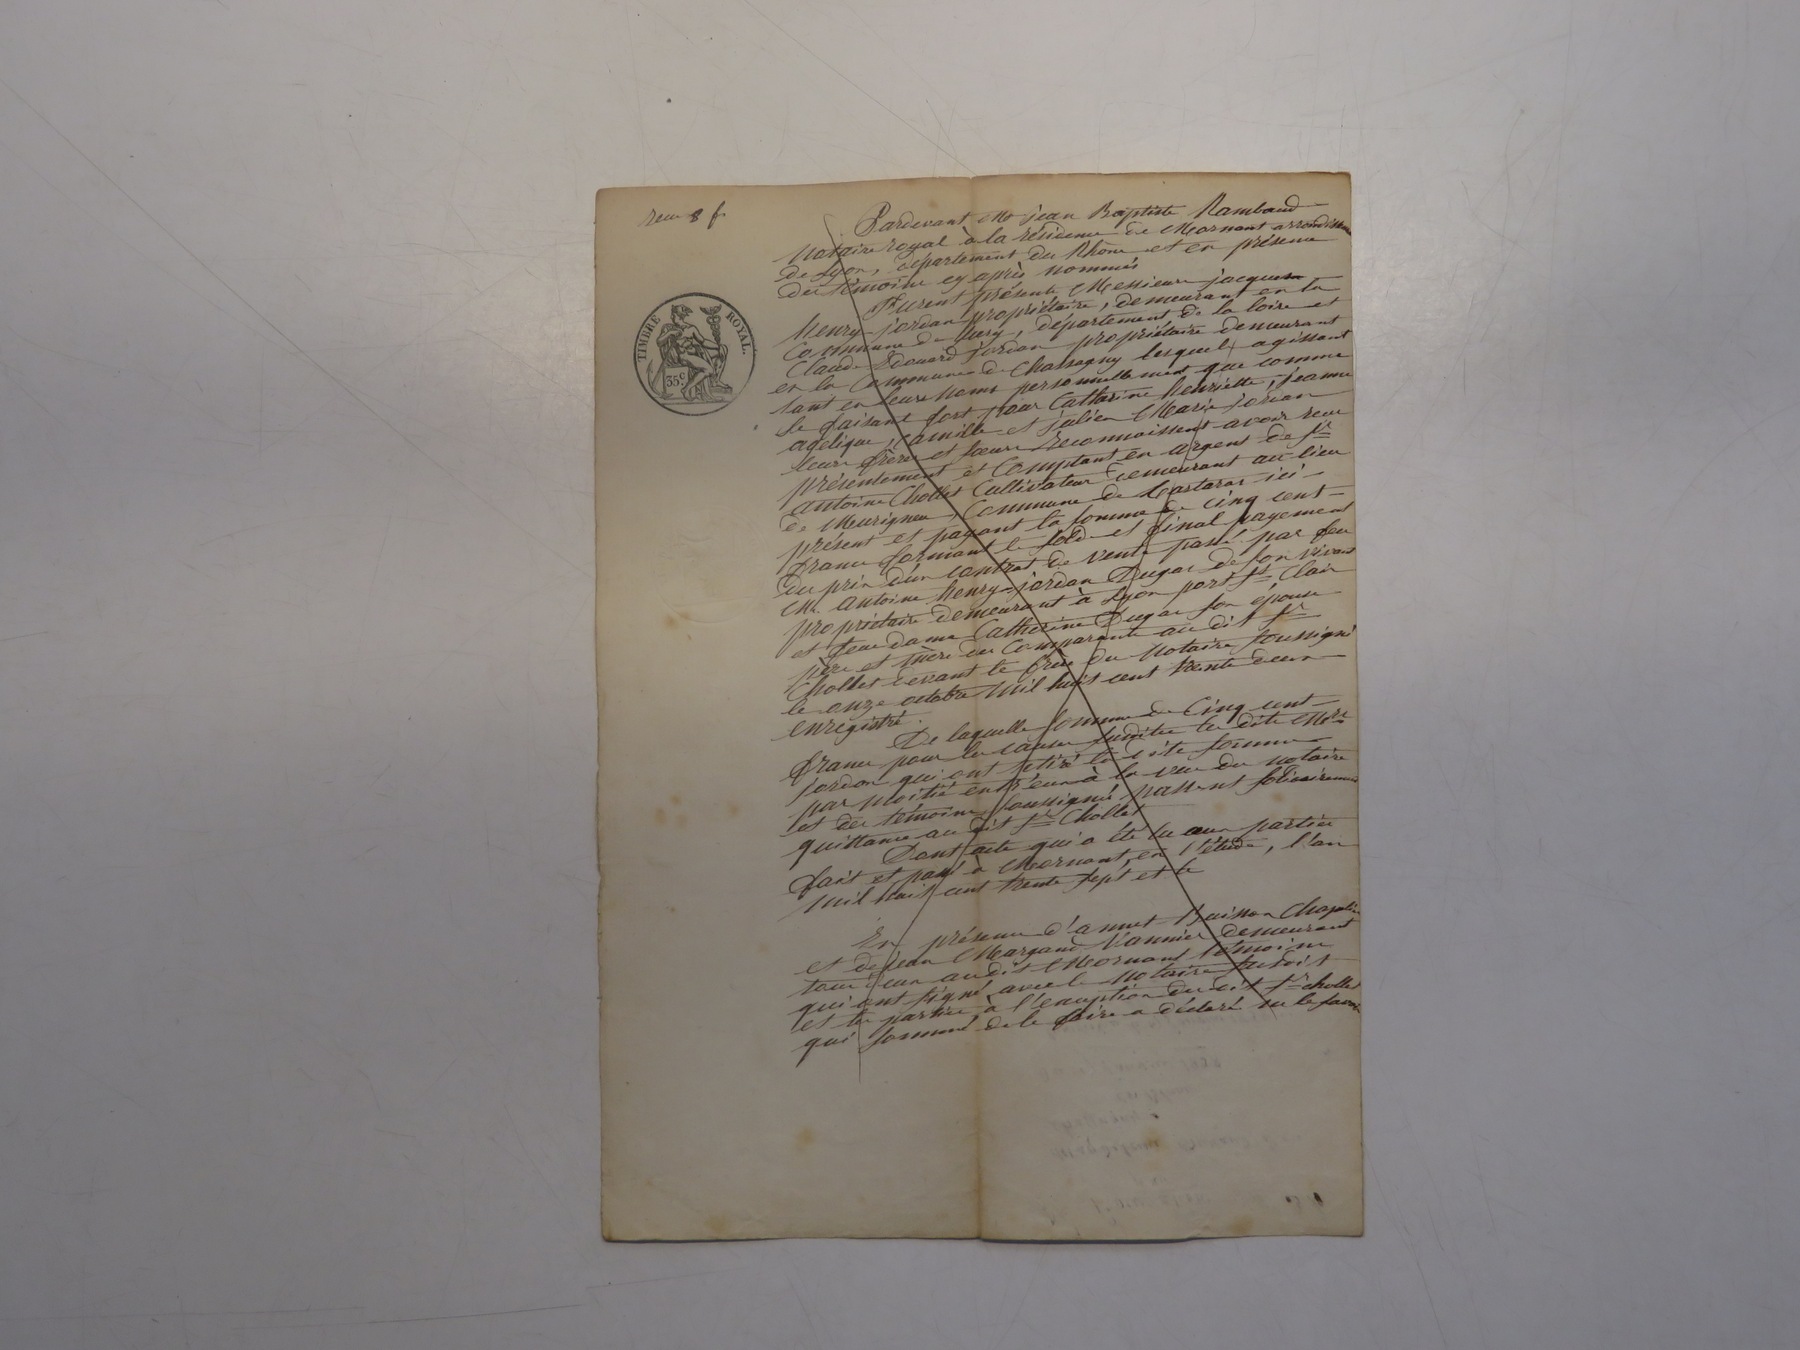 recu 8 f
TIMBRE ROYAL.
35 c
Pardevant Me jean Baptiste Rambaud
Notaire royal à la résidence de Mornant arrondissem
de Lyon, département du Rhône et en présence
des témoins cy après nommés
Furent présents Messieurs jacques
henry jordan propriétaire, demeurant en la
Commune de Lury, département de la loire et
Claude Edouard jordan propriétaire demeurant
en la Commune de Chassagny lesquels agissant
tant en leurs noms personnellement que comme
se faisant fort pour Catherine henriette, jeanne
agélique, camille et julien Marie jordan
leurs frères et sœurs Reconnaissent avoir reçu
présentement et Comptant en argent de Sr
antoine Chollet Cultivateur demeurant au lieu
de Murigneu, Commune de ici
présent et payant la somme de cinq cent
francs formant le solde et final payement
du prix d'un contrat de vente passé par feu
Mr. antoine henry-jordan Dugas de son vivant
propriétaire demeurant à Lyon port St Clair
et feue dame Catherine Dugas son épouse
père et mère des Comparants au dit Sr
Chollet devant le frère du Notaire soussigné
le onze octobre mil huit cent trente deux
enregistré.
De laquelle somme de Cinq cent
francs pour les causes susdites les dits Mrs
jordan qui ont retiré la dite somme
par moitié entr'eux à la vue du notaire
et des témoins soussignés passent solidairement
quittance au dit Sr Chollet
Dont acte qui a été lu aux parties
fait et passé à Mornant, en l'étude, l'an
mil huit cent trente sept et le
En présence d'annet Chapelier
et de jean Margand Vannier demeurant
tous deux audit Mornant témoins
qui ont signé avec le Notaire susdit
et les parties à l'exception du dit Sr chollet
qui sommé de le faire a déclaré ne le savoir